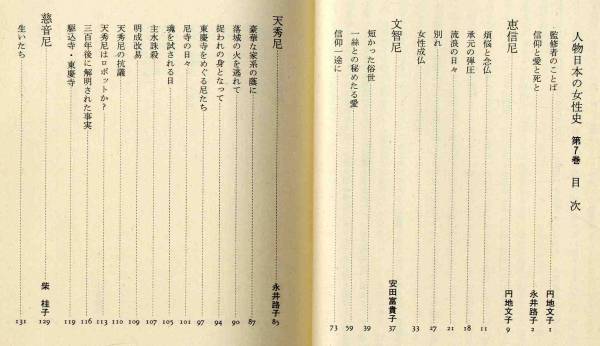 人物日本の女性史 第7巻 目次
監修者のことば 円地文子 1
信仰と愛と死と 永井路子 2
恵信尼 円地文子 9
煩悩と念仏 11
承元の弾圧 18
流浪の日々 21
別れ 27
女性成仏 33
文智尼 安田富貴子 37
短かった俗世 39
一絲との秘めたる愛 59
信仰一途に 73
天秀尼 永井路子 85
豪華な家系の蔭に 87
落城の火を逃れて 90
捉われの身となって 94
東慶寺をめぐる尼たち 97
尼寺の日々 101
魂を試される日 105
主水誅殺 107
明成改易 109
天秀尼の抗議 110
天秀尼はロボットか? 113
三百年後に解明された事実 116
駆込寺・東慶寺 119
慈音尼 柴桂子 129
生いたち 131